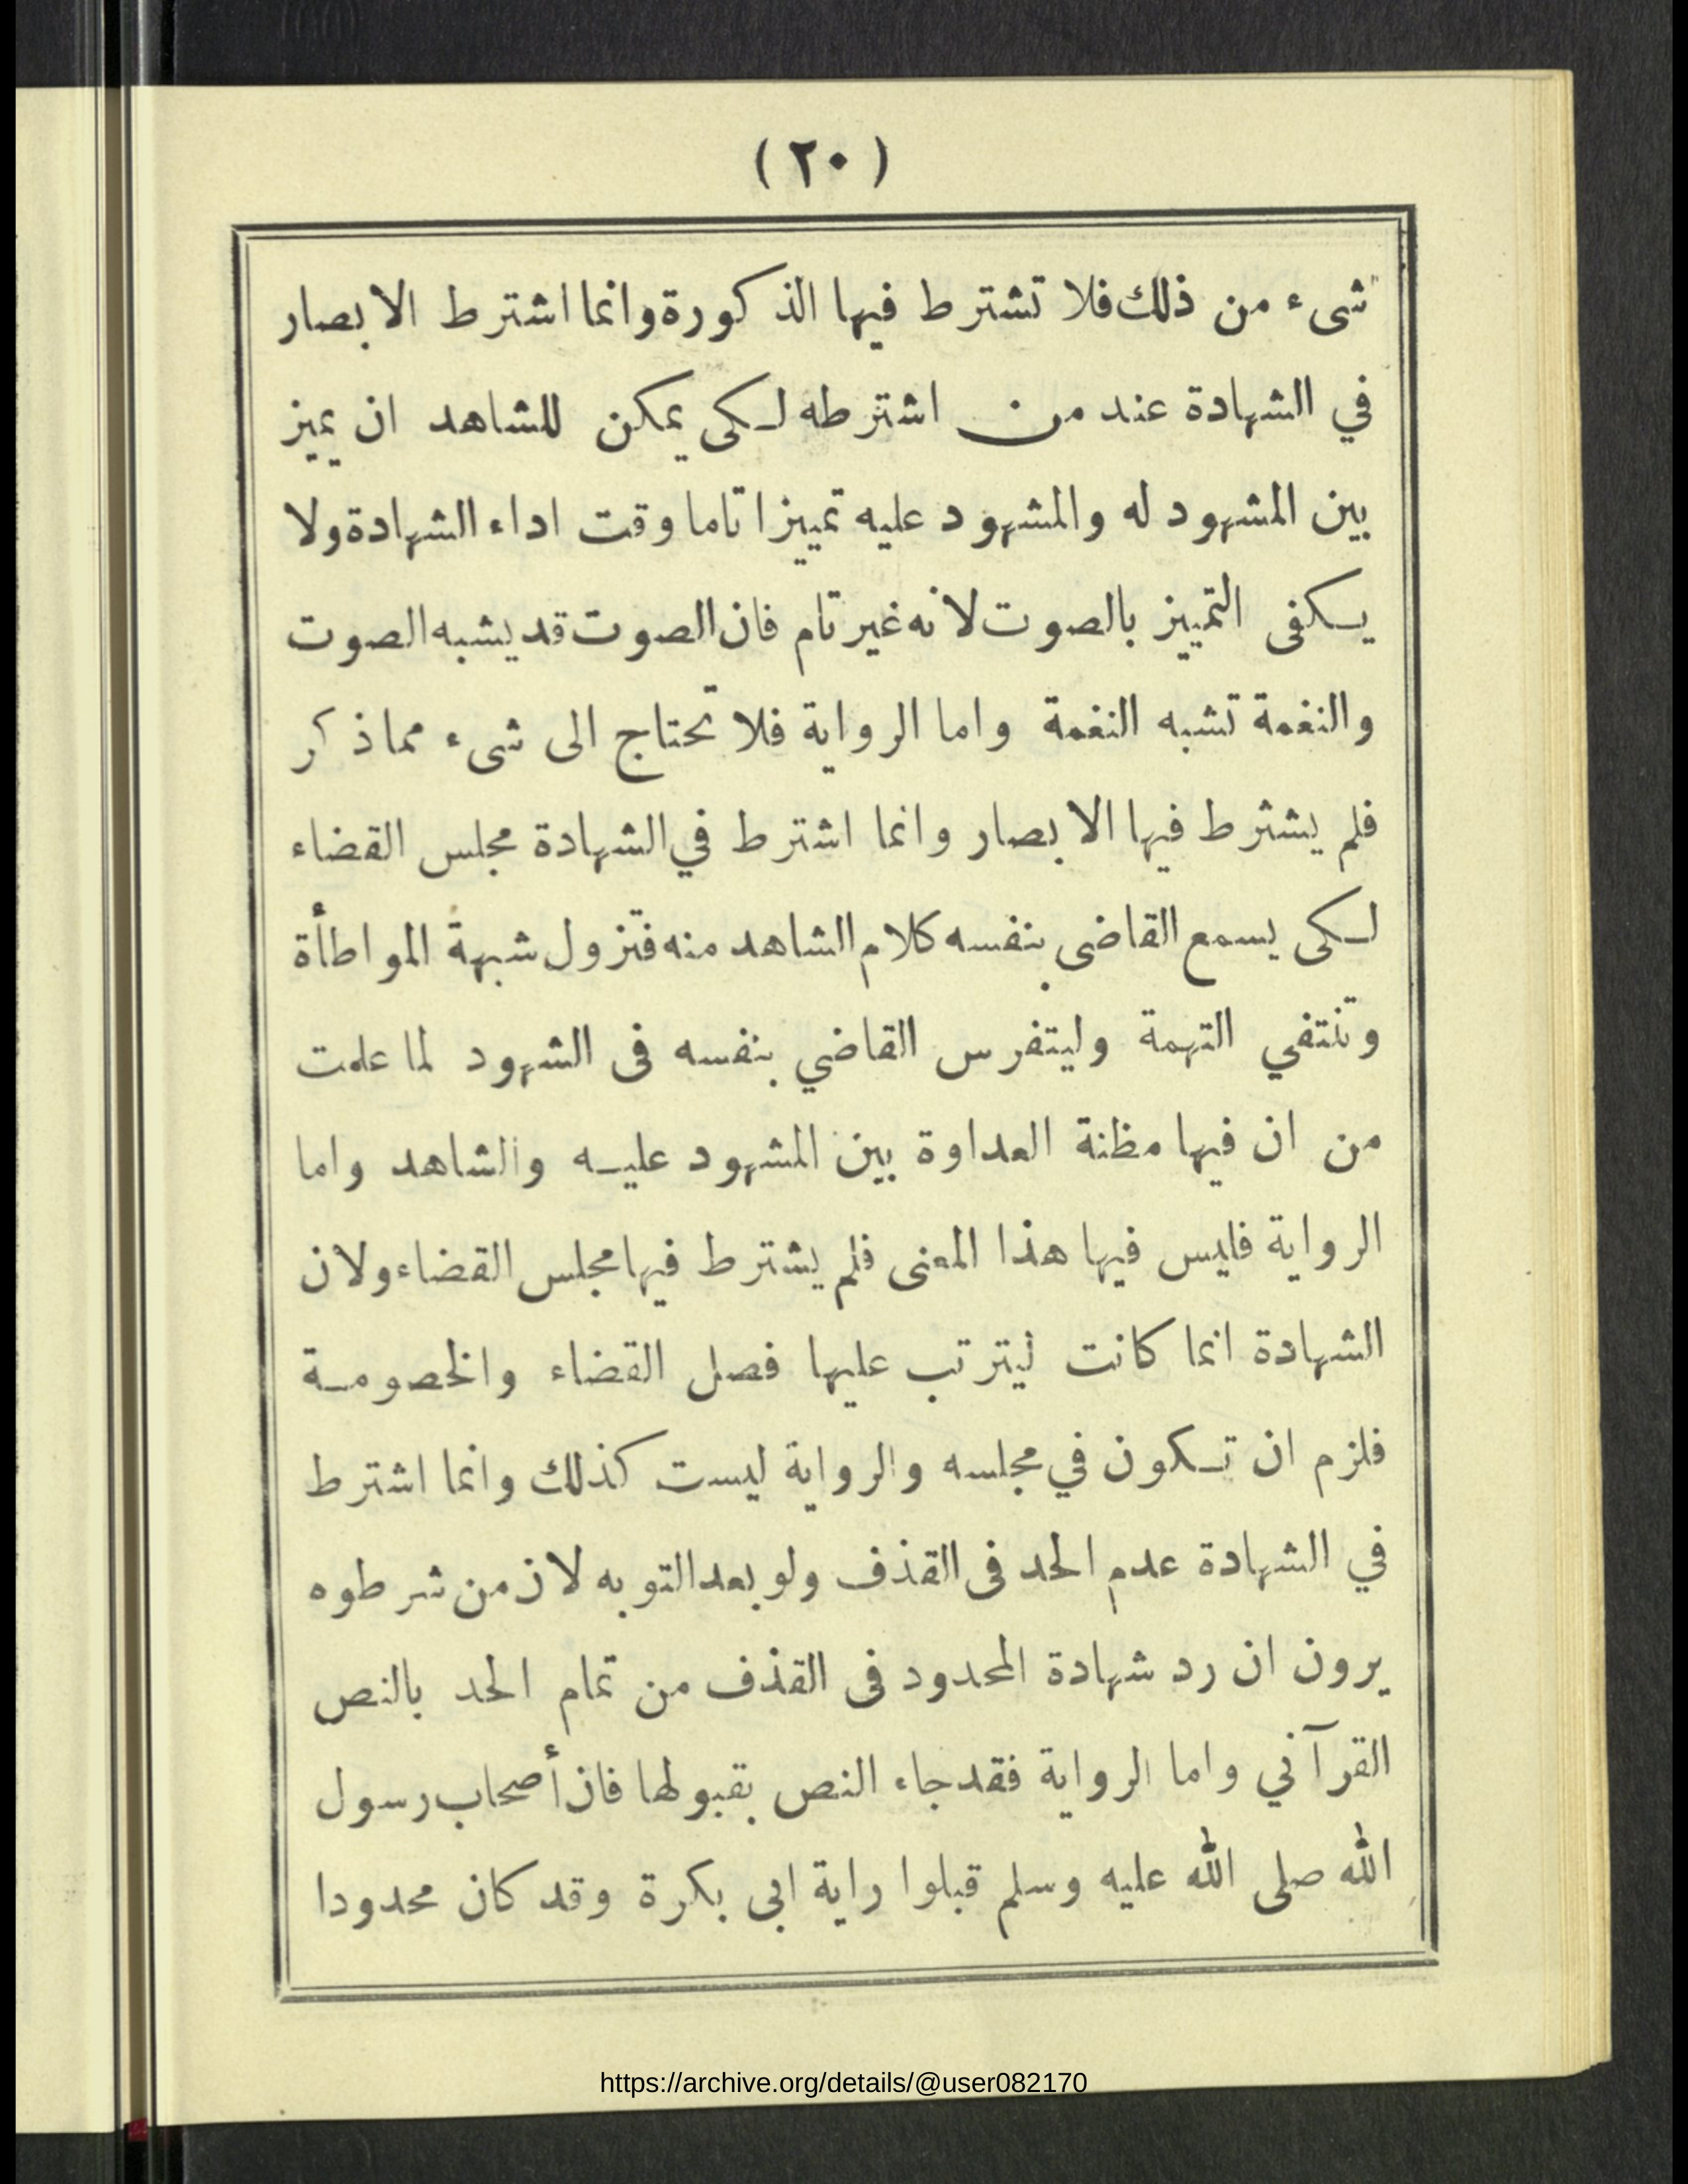 ( ٢٠ )
شىء من ذلك فلا تشترط فيها الذكورة وانما اشترط الابصار
في الشهادة عند من اشترطه لكى يمكن للشاهد ان يميز
بين المشهود له والمشهود عليه تمييزا تاما وقت اداء الشهادة ولا
يكفى التمييز بالصوت لانه غير تام فان الصوت قد يشبه الصوت
والنغمة تشبه النغمة واما الرواية فلا تحتاج الى شىء مما ذكر
فلم يشترط فيها الابصار وانما اشترط في الشهادة مجلس القضاء
لكى يسمع القاضى بنفسه كلام الشاهد منه فتزول شبهة المواطأة
وتنتفي التهمة وليتفرس القاضي بنفسه فى الشهود لما علمت
من ان فيها مظنة العداوة بين المشهود عليه والشاهد واما
الرواية فليس فيها هذا المعنى فلم يشترط فيها مجلس القضاء ولان
الشهادة انما كانت ليترتب عليها فصل القضاء والخصومة
فلزم ان تكون في مجلسه والرواية ليست كذلك وانما اشترط
في الشهادة عدم الحد فى القذف ولو بعد التوبه لان من شرطوه
يرون ان رد شهادة المحدود فى القذف من تمام الحد بالنص
القرآني واما الرواية فقد جاء النص بقبولها فان أصحاب رسول
الله صلى الله عليه وسلم قبلوا راية ابى بكرة وقد كان محدودا
https://archive.org/details/@user082170